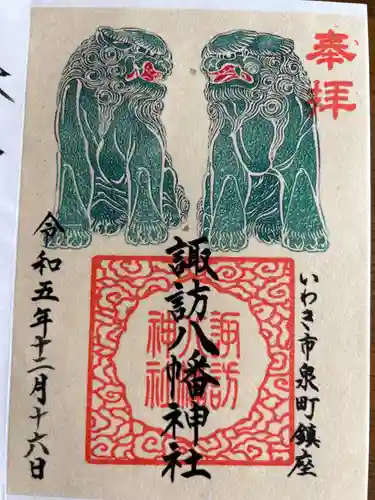 奉拝
いわき市泉町鎮座
諏訪八幡神社
諏訪
八幡
神社
令和五年十二月十六日